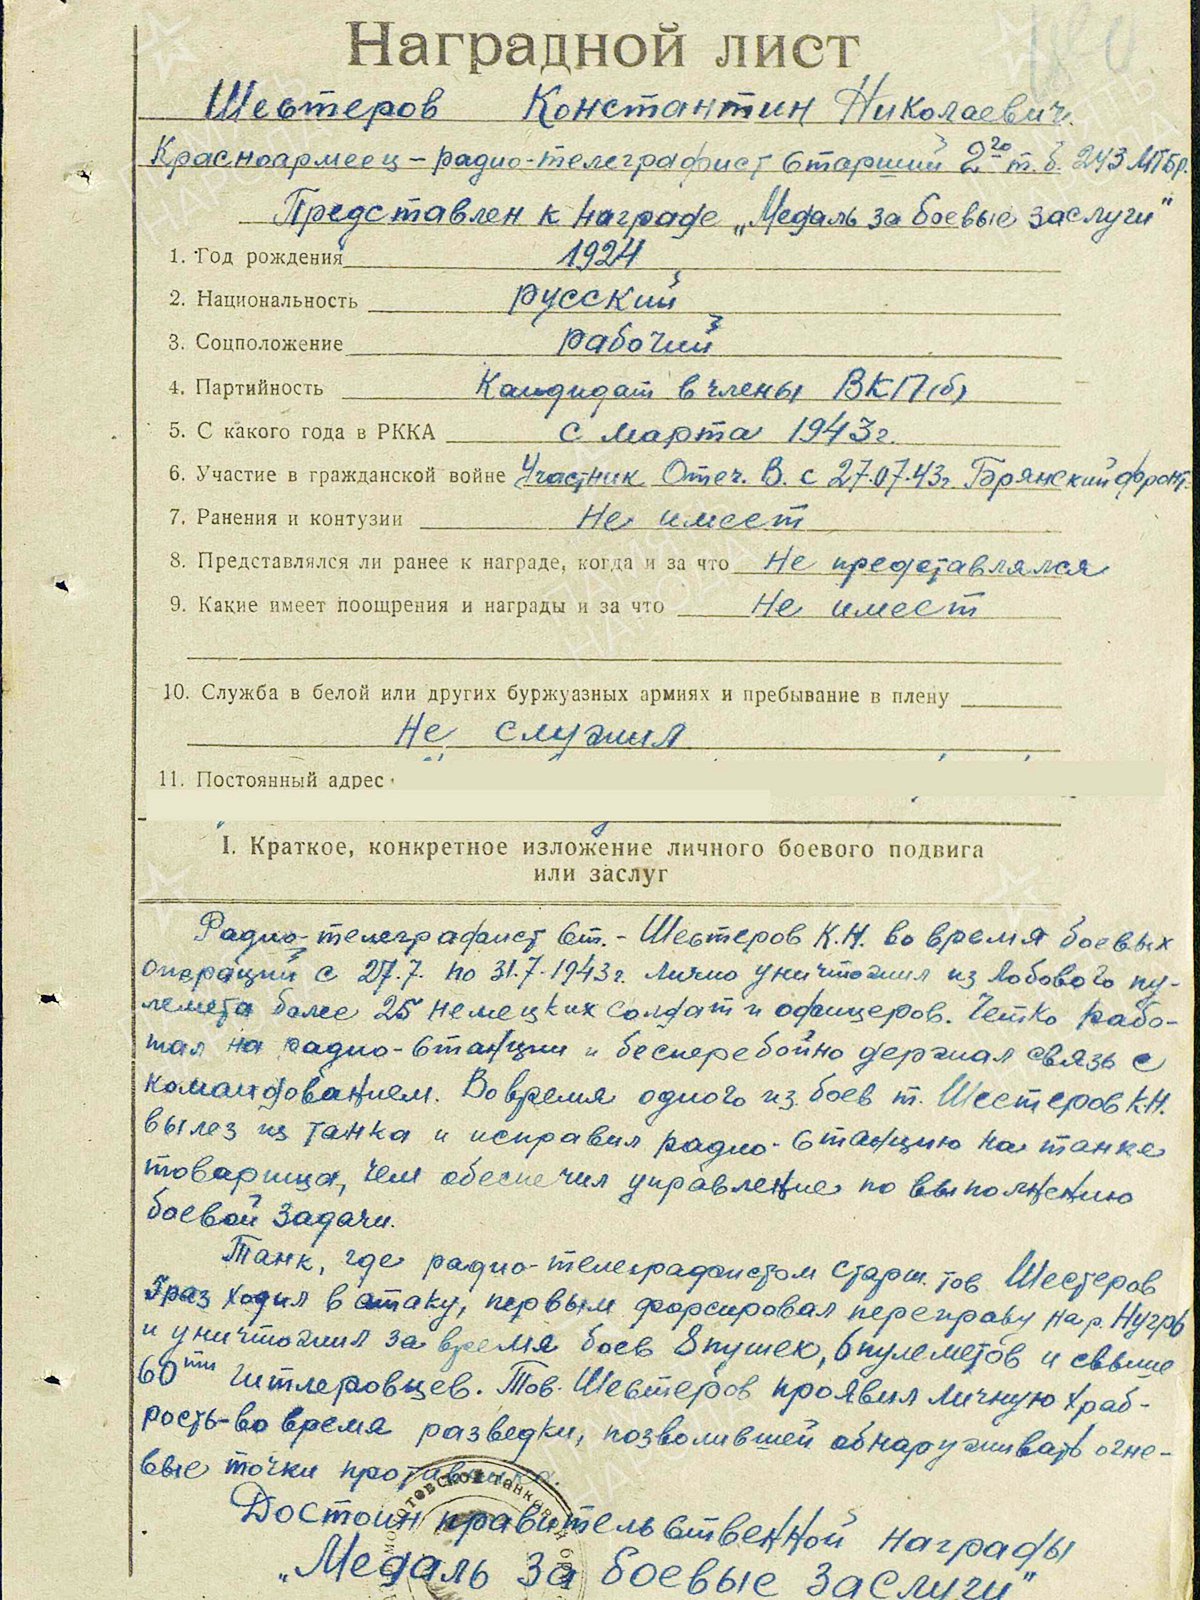 Наградной лист
Шестеров Константин Николаевич.
Красноармеец - радио-телеграфист старший 2го т.б. 243 МТБр.
Представлен к награде „Медаль за боевые заслуги"
1. Год рождения 1924
2. Национальность русский
3. Соцположение рабочий
4. Партийность Кандидат в члены ВКП(б)
5. С какого года в РККА с марта 1943г.
6. Участие в гражданской войне Участник Отеч. В. с 27.07.43г. Брянский фронт.
7. Ранения и контузии Не имеет
8. Представлялся ли ранее к награде, когда и за что Не представлялся
9. Какие имеет поощрения и награды и за что Не имеет
10. Служба в белой или других буржуазных армиях и пребывание в плену
Не служил
11. Постоянный адрес
I. Краткое, конкретное изложение личного боевого подвига
или заслуг
Радио-телеграфист ст. - Шестеров К.Н. во время боевых
операций с 27.7. по 31.7.1943г. лично уничтожил из лобового пу-
лемета более 25 немецких солдат и офицеров. Четко рабо-
тал на радио-станции и бесперебойно держал связь с
командованием. Во время одного из боев т. Шестеров К.Н.
вылез из танка и исправил радио-станцию на танке
товарища, чем обеспечил управление по выполнению
боевой задачи.
Танк, где радио-телеграфистом старш. тов Шестеров
раз ходил в атаку, первым форсировал переправу на р. Нугрь
и уничтожил за время боев 8 пушек, 6 пулеметов и свыше
60ти гитлеровцев. Тов. Шестеров проявил личную храб-
рость-во время разведки, позволившей обнаруживать огне-
вые точки противника.
Достоин правительственной награды
„Медаль за боевые заслуги"
молотовской танковой бр
ПАМЯТЬ НАРОДА